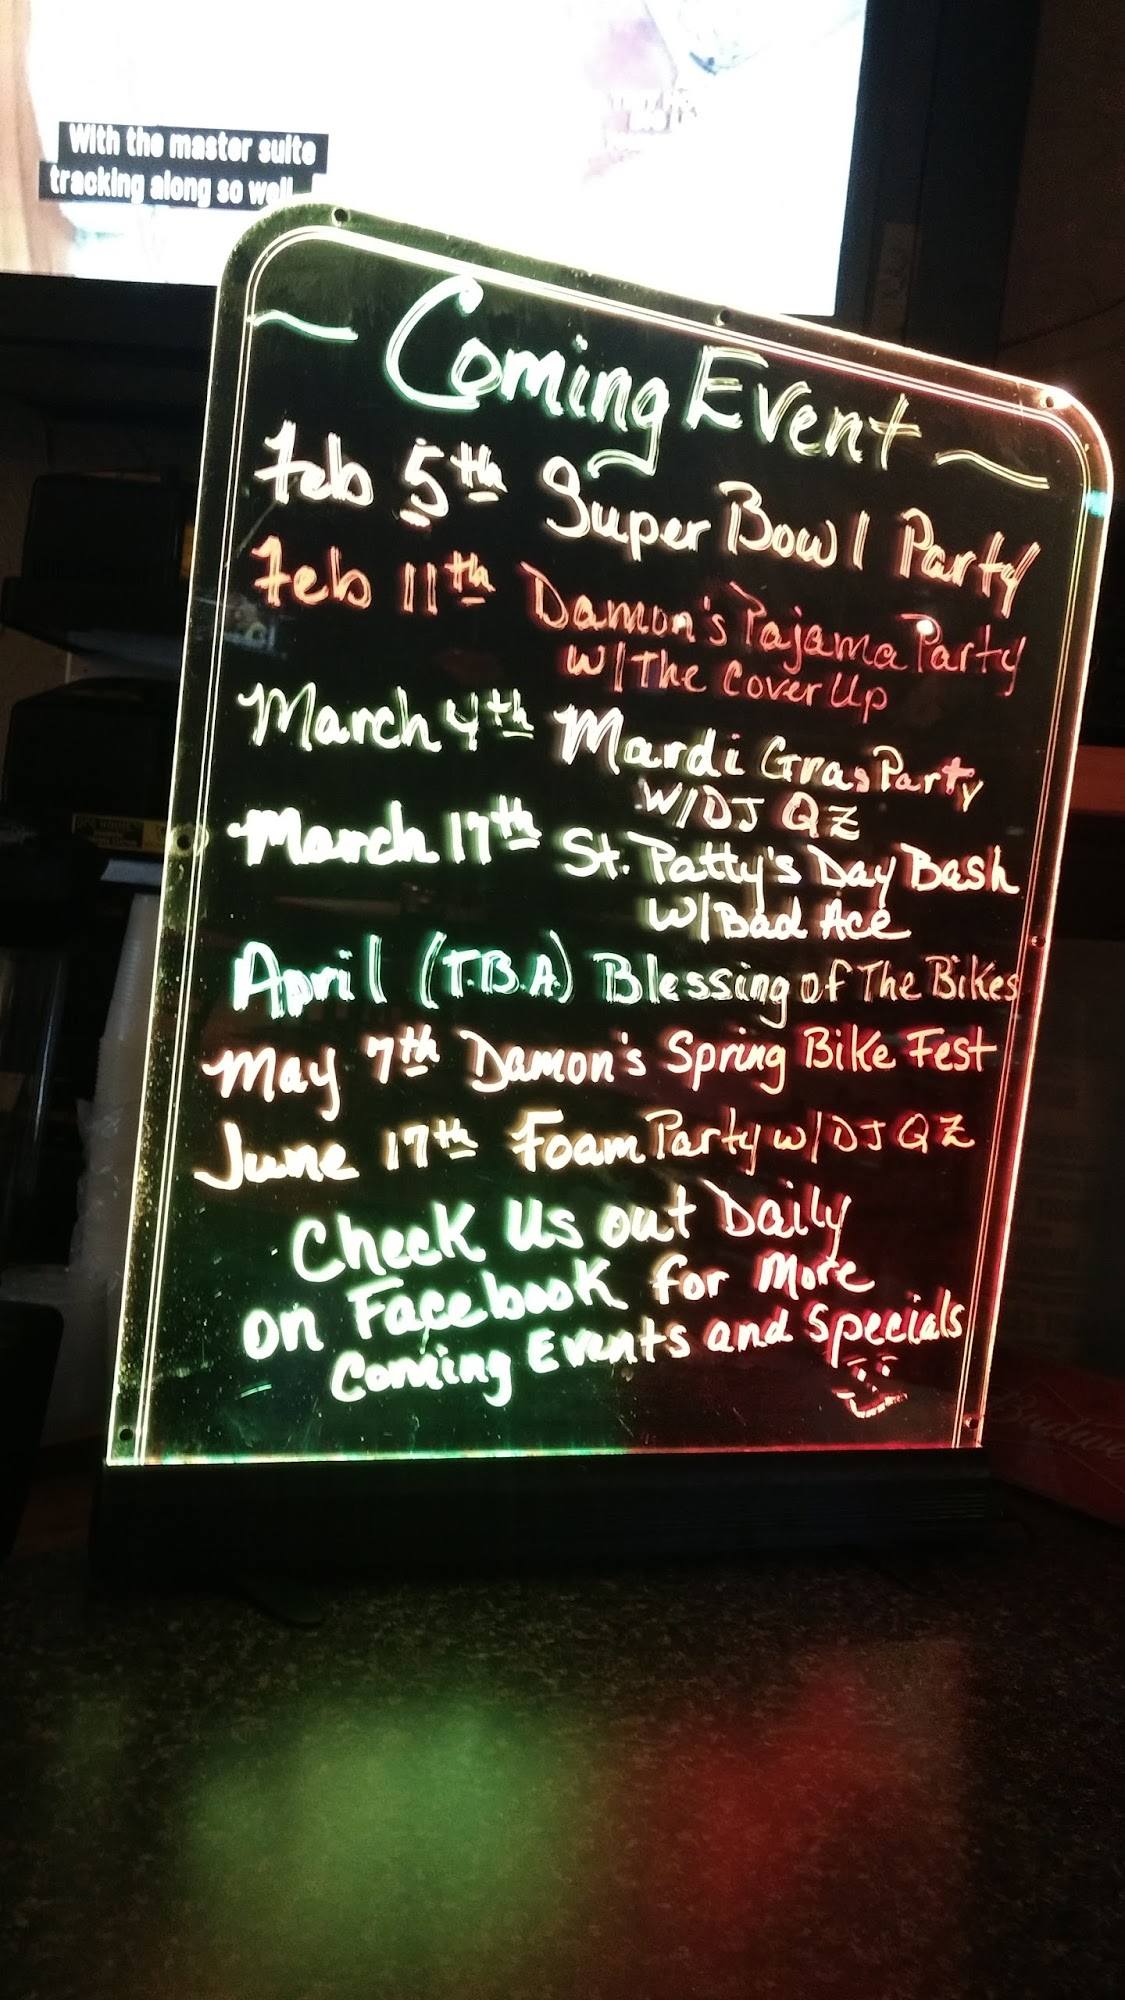 With the master suite
tracking along so well
~ Coming Event ~
Feb 5th Super Bowl Party
Feb 11th Damon's Pajama Party
w/ The Cover Up
March 4th Mardi Gras Party
w/ DJ QZ
March 17th St. Patty's Day Bash
w/ Bad Ace
April (T.B.A.) Blessing of The Bikes
May 7th Damon's Spring Bike Fest
June 17th Foam Party w/ DJ QZ
Check Us out Daily
on Facebook for More
Coming Events and Specials